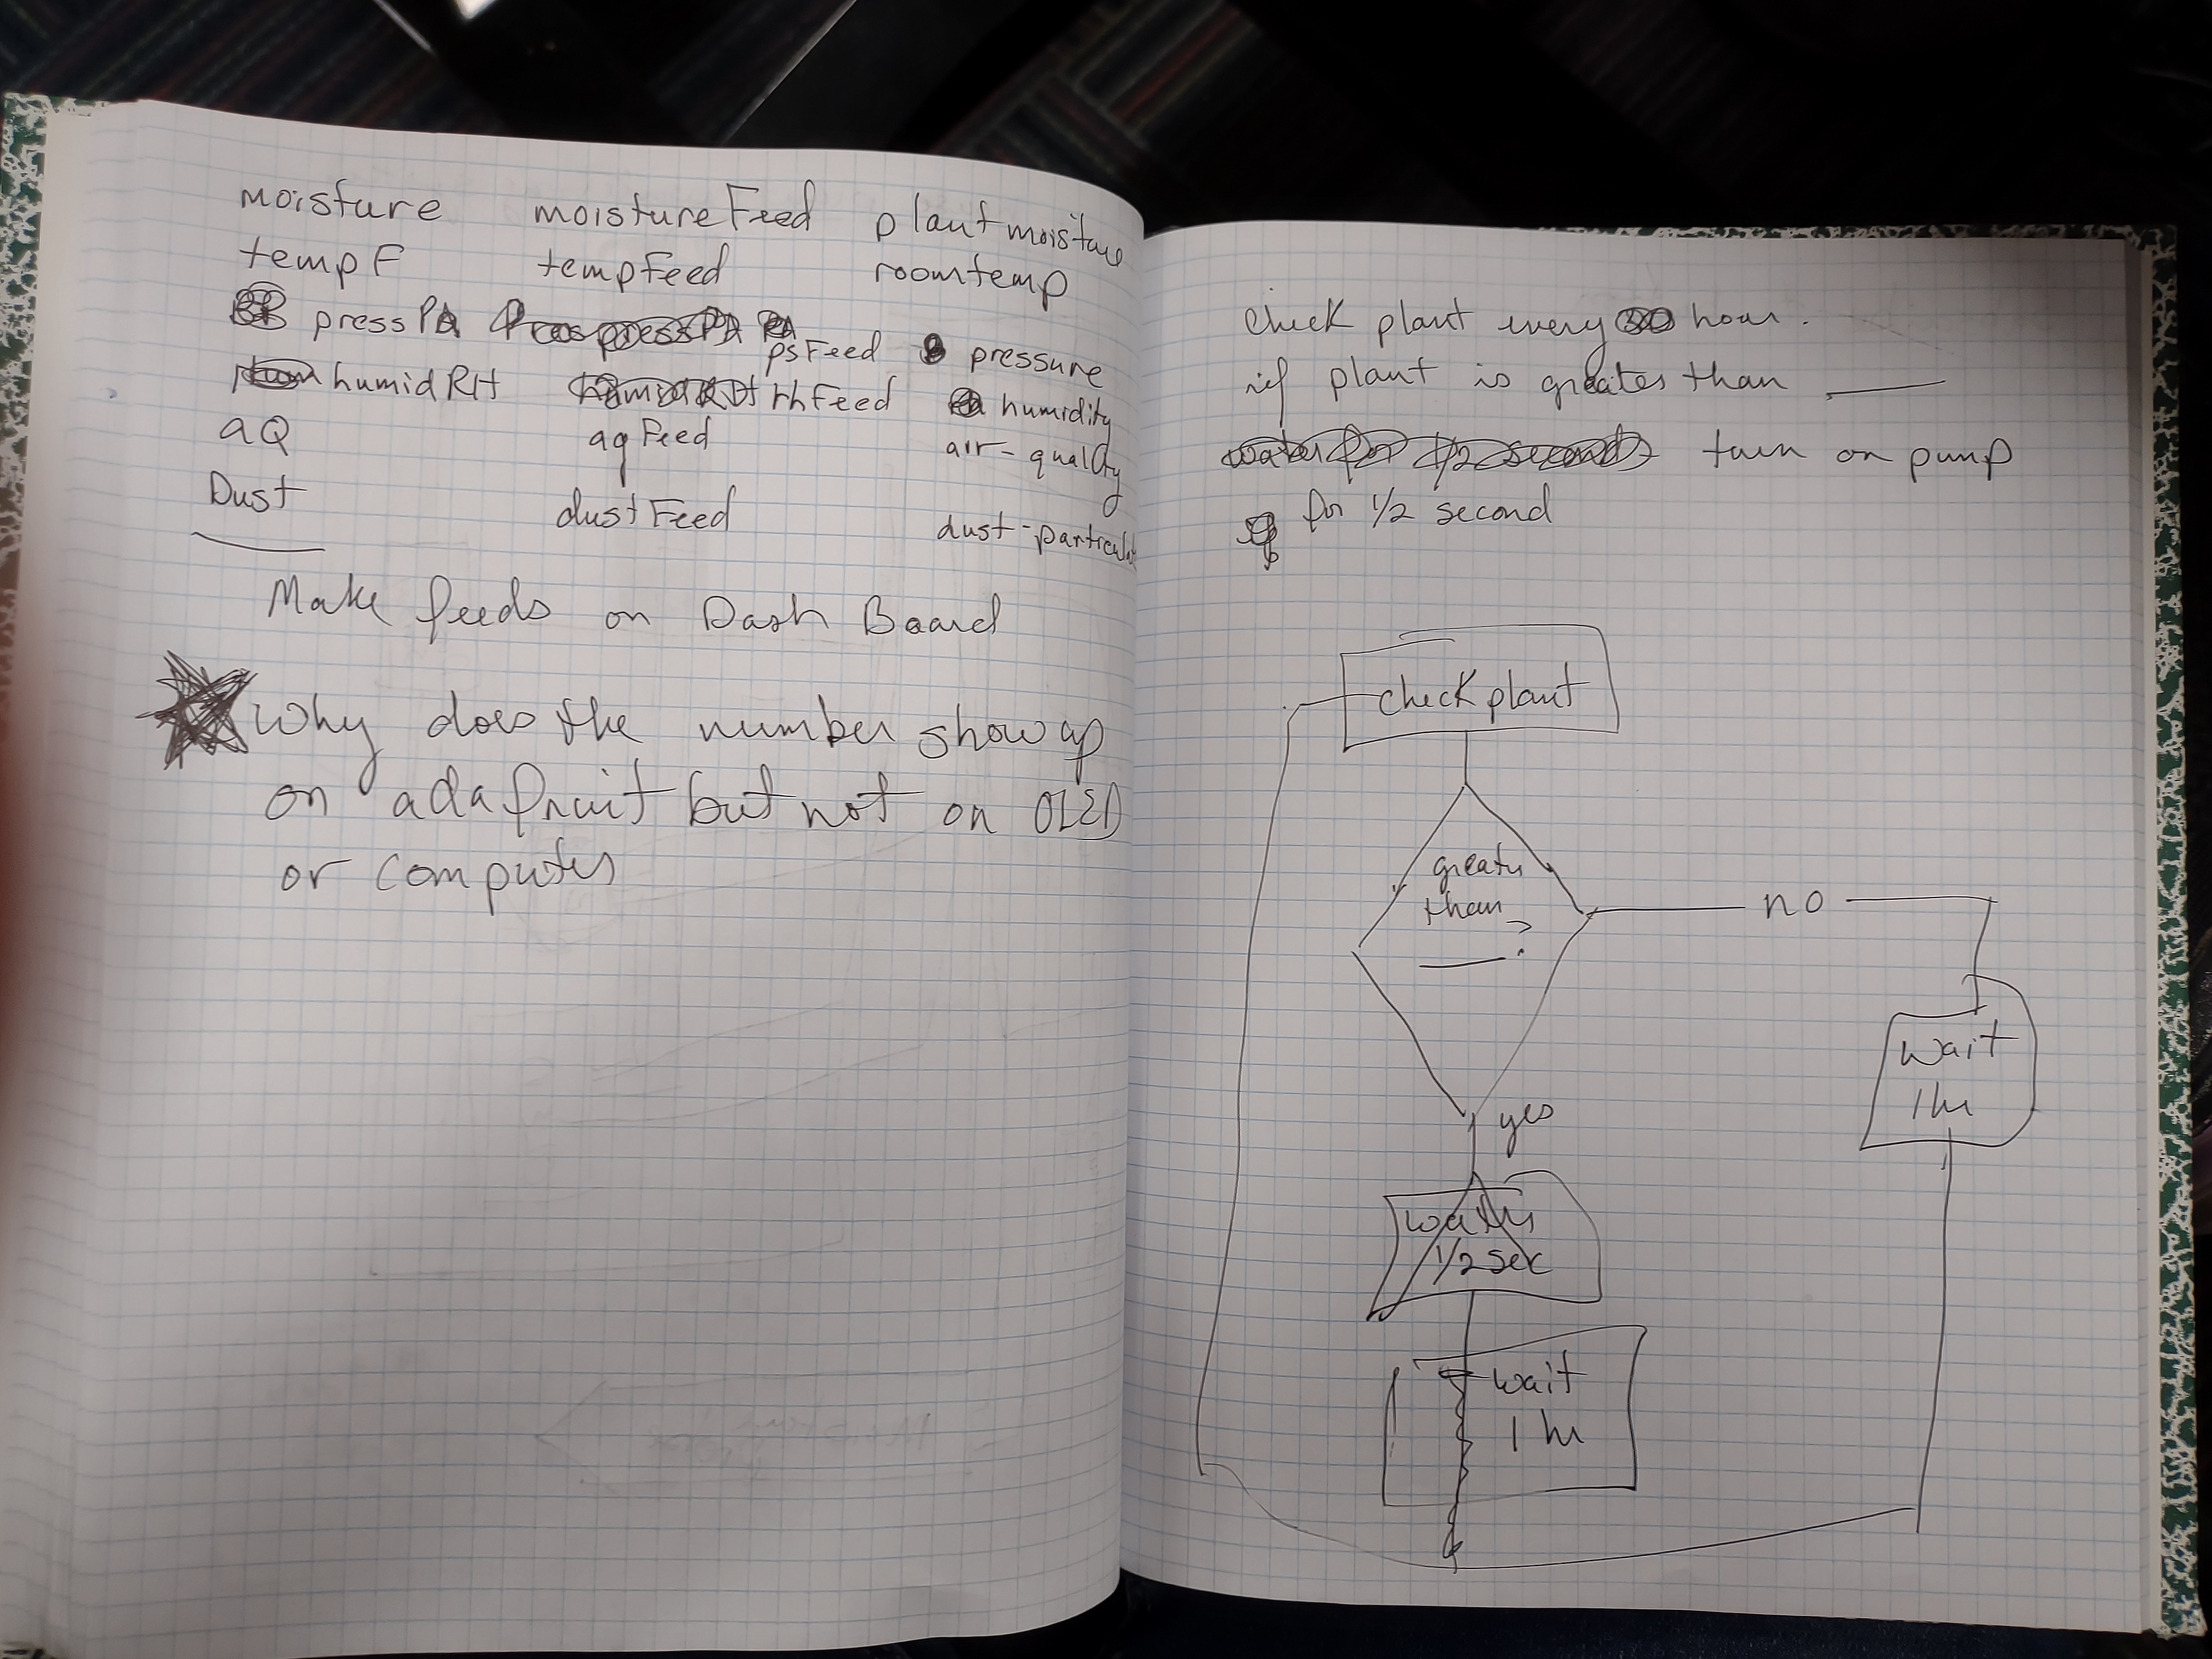 moisture moistureFeed plantmoisture
tempF tempFeed roomtemp
pressPA psFeed pressure
humidRH rhFeed humidity
aQ aqFeed air-quality
Dust dustFeed dust-particulat
Make feeds on Dash Board
Why does the number show up
on adafruit but not on OLED
or computer
check plant every hour.
if plant is greater than ____
water for 1/2 seconds turn on pump
for 1/2 second
check plant
greater
than
____?
no
wait
1 hr
yes
water
1/2 sec
wait
1 hr